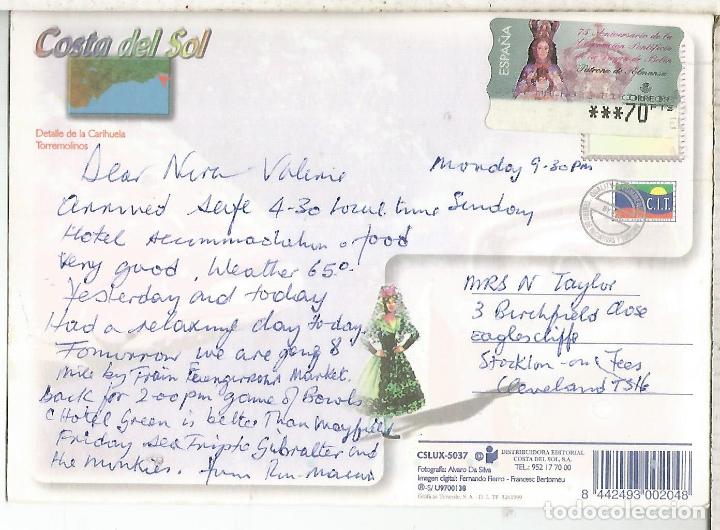 Costa del Sol
Detalle de la Carihuela
Torremolinos
ESPAÑA
75 Aniversario de la
Coronación Pontificia
Virgen de Belén
Patrona de Almansa
CORREOS
***70 PTS
C.I.T.
Monday 9-30pm
Dear Nora Valerie
Arrived safe 4-30 local time Sunday
Hotel Accommadation & food
Very good, Weather 65°
Yesterday and today
Had a relaxing day today
Tomorrow we are going 8
mile by Train Market.
Back for 2-00pm game of Bowls
Hotel Green is better Than
Friday Trip to Gibralter and
the Munkies. from
MRS N Taylor
3 Birchfield Close
Eaglescliffe
Stockton-on Tees
Cleveland TS16
CSLUX-5037
Fotografía: Alvaro Da Silva
Imagen digital: Fernando Fierro - Francesc Bertomeu
®-S/U9700138
DISTRIBUIDORA EDITORIAL
COSTA DEL SOL, S.A.
TEL.: 952 17 70 00
8 442493 002048
todocoleccion